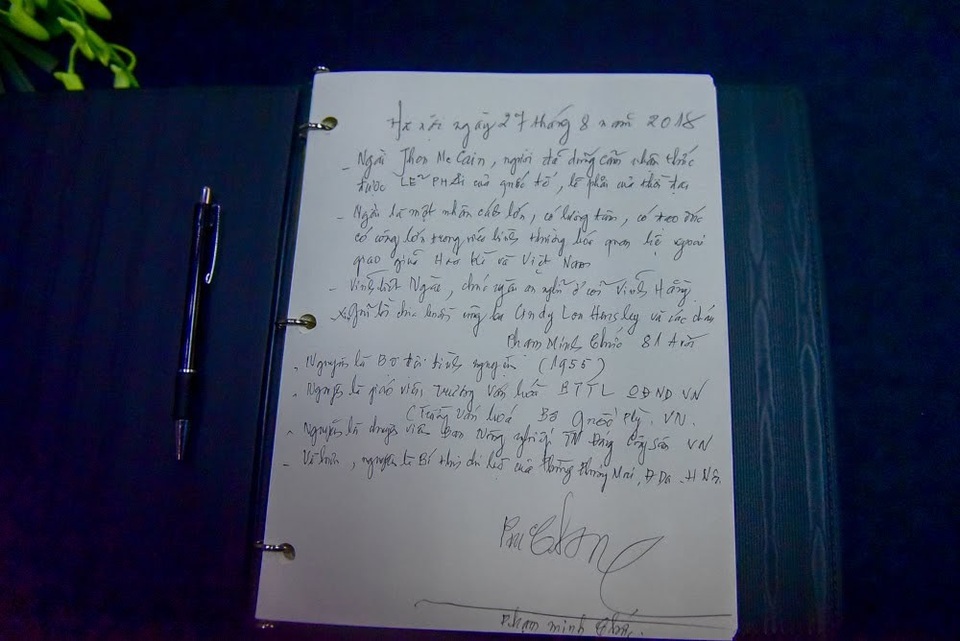 Hà nội ngày 27 tháng 8 năm 2018
- Ngài Jhon Mc Cain, người đã dũng cảm nhận thức
được LẼ PHẢI của quốc tế, lẽ phải của thời đại
- Ngài là một nhân cách lớn, có lương tâm, có đạo đức
có công lớn trong việc bình thường hóa quan hệ ngoại
giao giữa Hoa Kì và Việt Nam
- Vĩnh biệt Ngài, chúc ngài an nghỉ ở cõi Vĩnh Hằng.
Gửi lời chia buồn tới bà Cindy Lou Hensley và các cháu
Phạm Minh Chức 81 tuổi
- Nguyên là Bộ đội tình nguyện (1955)
- Nguyên là giáo viên Trường Văn hoá BTTL QĐND VN
(Trường Văn hoá Bộ Quốc Phòng VN.
- Nguyên là chuyên viên Ban Nông nghiệp TW Đảng Cộng sản VN
- Về hưu, nguyên là Bí thư chi bộ của Phường Phương Mai, Đ Đa - H Nội.
Phạm Minh